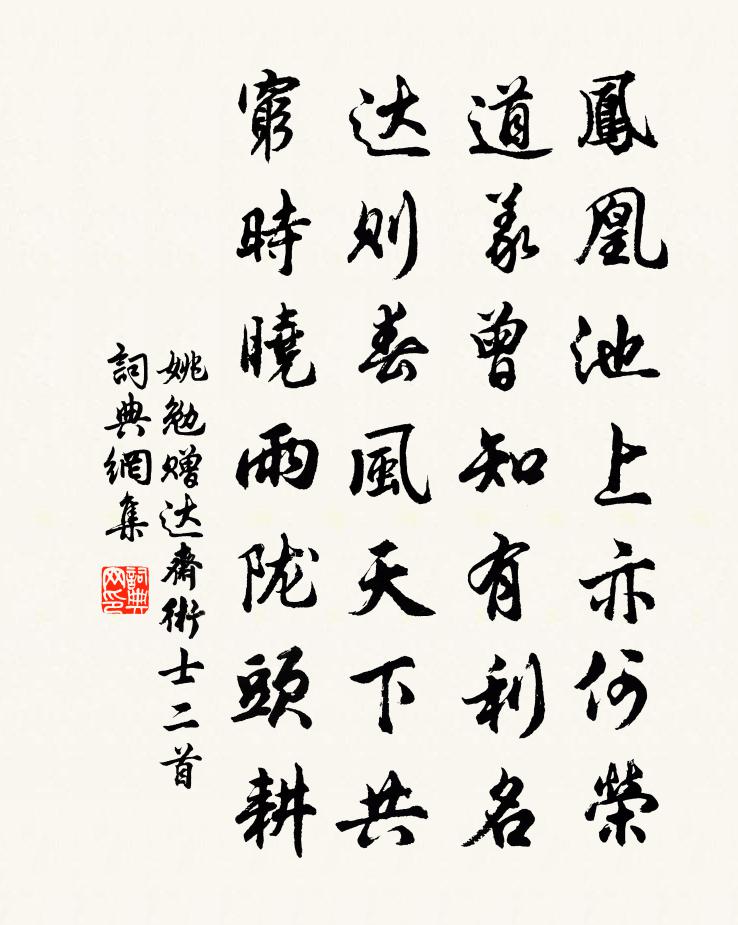 鳳凰池上亦何榮
道義曾知有利名
达則春風天下共
窮時曉雨陇頭耕
姚勉赠达齋術士二首
詞典網集
詞典网印